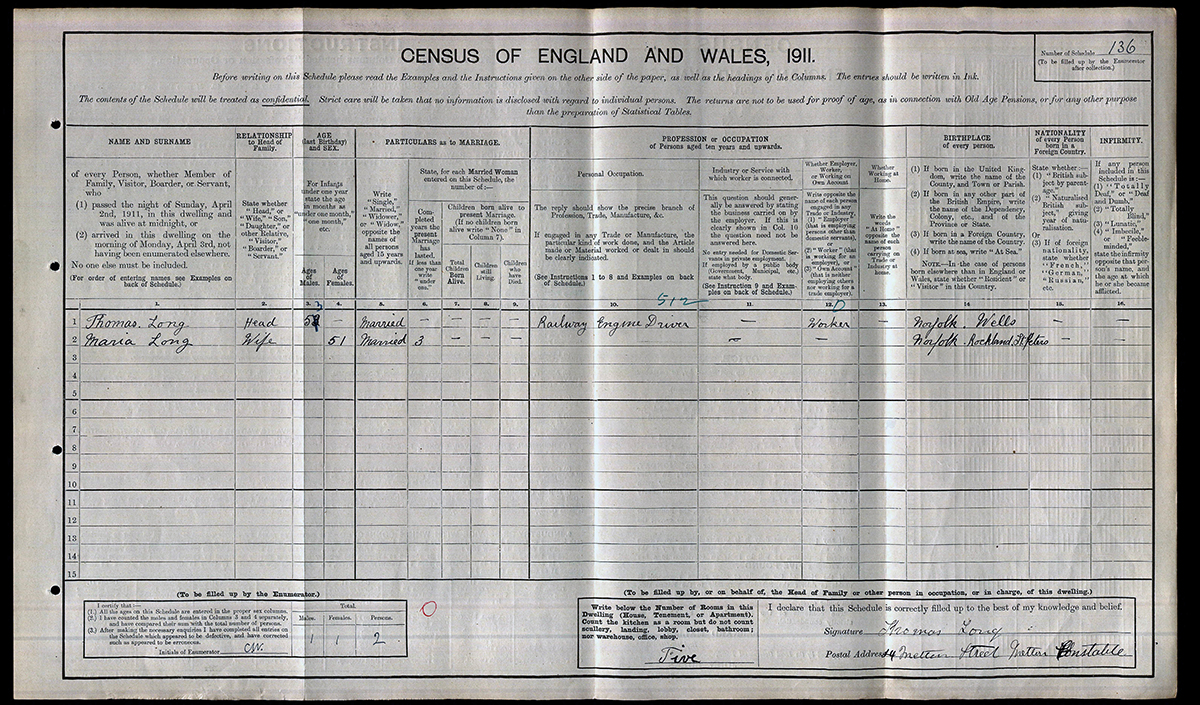 Number of Schedule 136
(To be filled up by the Enumerator
after collection.)
CENSUS OF ENGLAND AND WALES, 1911.
Before writing on this Schedule please read the Examples and the Instructions given on the other side of the paper, as well as the headings of the Columns. The entries should be written in Ink.
The contents of the Schedule will be treated as confidential. Strict care will be taken that no information is disclosed with regard to individual persons. The returns are not to be used for proof of age, as in connection with Old Age Pensions, or for any other purpose
than the preparation of Statistical Tables.
NAME AND SURNAME
of every Person, whether Member of
Family, Visitor, Boarder, or Servant,
who
(1) passed the night of Sunday, April
2nd, 1911, in this dwelling and
was alive at midnight, or
(2) arrived in this dwelling on the
morning of Monday, April 3rd, not
having been enumerated elsewhere.
No one else must be included.
(For order of entering names see Examples on
back of Schedule.)
RELATIONSHIP
to Head of
Family.
State whether
"Head," or
"Wife," "Son,"
"Daughter," or
other Relative,
"Visitor,"
"Boarder," or
"Servant."
AGE
(last Birthday)
and SEX.
For Infants
under one year
state the age
in months as
"under one month,"
"one month,"
etc.
Ages
of
Males.
Ages
of
Females.
PARTICULARS as to MARRIAGE.
Write
"Single,"
"Married,"
"Widower,"
or "Widow,"
opposite the
names of
all persons
aged 15 years
and upwards.
State, for each Married Woman
entered on this Schedule, the
number of:—
Com-
pleted
years the
present
Marriage
has
lasted.
If less than
one year
write
"under
one."
Children born alive to
present Marriage.
(If no children born
alive write "None" in
Column 7).
Total
Children
Born
Alive.
Children
still
Living.
Children
who
have
Died.
PROFESSION or OCCUPATION
of Persons aged ten years and upwards.
Personal Occupation.
The reply should show the precise branch of
Profession, Trade, Manufacture, &c.
If engaged in any Trade or Manufacture, the
particular kind of work done, and the Article
made or Material worked or dealt in should
be clearly indicated.
(See Instructions 1 to 8 and Examples on back
of Schedule.)
Industry or Service with
which worker is connected.
This question should gener-
ally be answered by stating
the business carried on by
the employer. If this is
clearly shown in Col. 10
the question need not be
answered here.
No entry needed for Domestic Ser-
vants in private employment.
If employed by a public body
(Government, Municipal, etc.)
state what body.
(See Instruction 9 and Exam-
ples on back of Schedule.)
Whether Employer,
Worker,
or Working on
Own Account
Write opposite the
name of each person
engaged in any
Trade or Industry,
(1) "Employer"
(that is employing
persons other than
domestic servants),
or
(2) "Worker" (that
is working for an
employer), or
(3) "Own Account"
(that is neither
employing others
nor working for a
trade employer).
Whether
Working at
Home.
Write the
words
"At Home"
opposite the
name of each
person
carrying on
Trade or
Industry at
Home.
BIRTHPLACE
of every person.
(1) If born in the United King-
dom, write the name of the
County, and Town or Parish.
(2) If born in any other part of
the British Empire, write
the name of the Dependency,
Colony, etc., and of the
Province or State.
(3) If born in a Foreign Country,
write the name of the Country.
(4) If born at sea, write "At Sea."
NOTE.—In the case of persons
born elsewhere than in England or
Wales, state whether "Resident" or
"Visitor" in this Country.
NATIONALITY
of every Person
born in a
Foreign Country.
State whether:—
(1) "British sub-
ject by parent-
age."
(2) "Naturalised
British sub-
ject," giving
year of natu-
ralisation.
Or
(3) If of foreign
nationality,
state whether
"French,"
"German,"
"Russian,"
etc.
INFIRMITY.
If any person
included in this
Schedule is:—
(1) "Totally
Deaf," or "Deaf
and Dumb,"
(2) "Totally
Blind,"
(3) "Lunatic,"
(4) "Imbecile,"
or "Feeble-
minded,"
state the infirmity
opposite that per-
son's name, and
the age at which
he or she became
afflicted.
512
1. 2. 3. 4. 5. 6. 7. 8. 9. 10. 11. 12. 13. 14 15. 16.
1 Thomas. Long Head — Married — — — — Railway Engine Driver — Worker — Norfolk. Wells — —
2 Maria Long Wife 51 Married 3 — — — — — Norfolk. Rockland St Peters — —
3
4
5
6
7
8
9
10
11
12
13
14
15
(To be filled up by the Enumerator.)
I certify that:—
(1.) All the ages on this Schedule are entered in the proper sex columns.
(2.) I have counted the males and females in Columns 3 and 4 separately,
and have compared their sum with the total number of persons.
(3.) After making the necessary enquiries I have completed all entries on
the Schedule which appeared to be defective, and have corrected
such as appeared to be erroneous.
Initials of Enumerator CW.
Total.
Males. Females. Persons.
1 1 2
(To be filled up by, or on behalf of, the Head of Family or other person in occupation, or in charge, of this dwelling.)
Write below the Number of Rooms in this
Dwelling (House, Tenement, or Apartment).
Count the kitchen as a room but do not count
scullery, landing, lobby, closet, bathroom;
nor warehouse, office, shop.
Five
I declare that this Schedule is correctly filled up to the best of my knowledge and belief.
Signature Thomas Long
Postal Address Street Constable